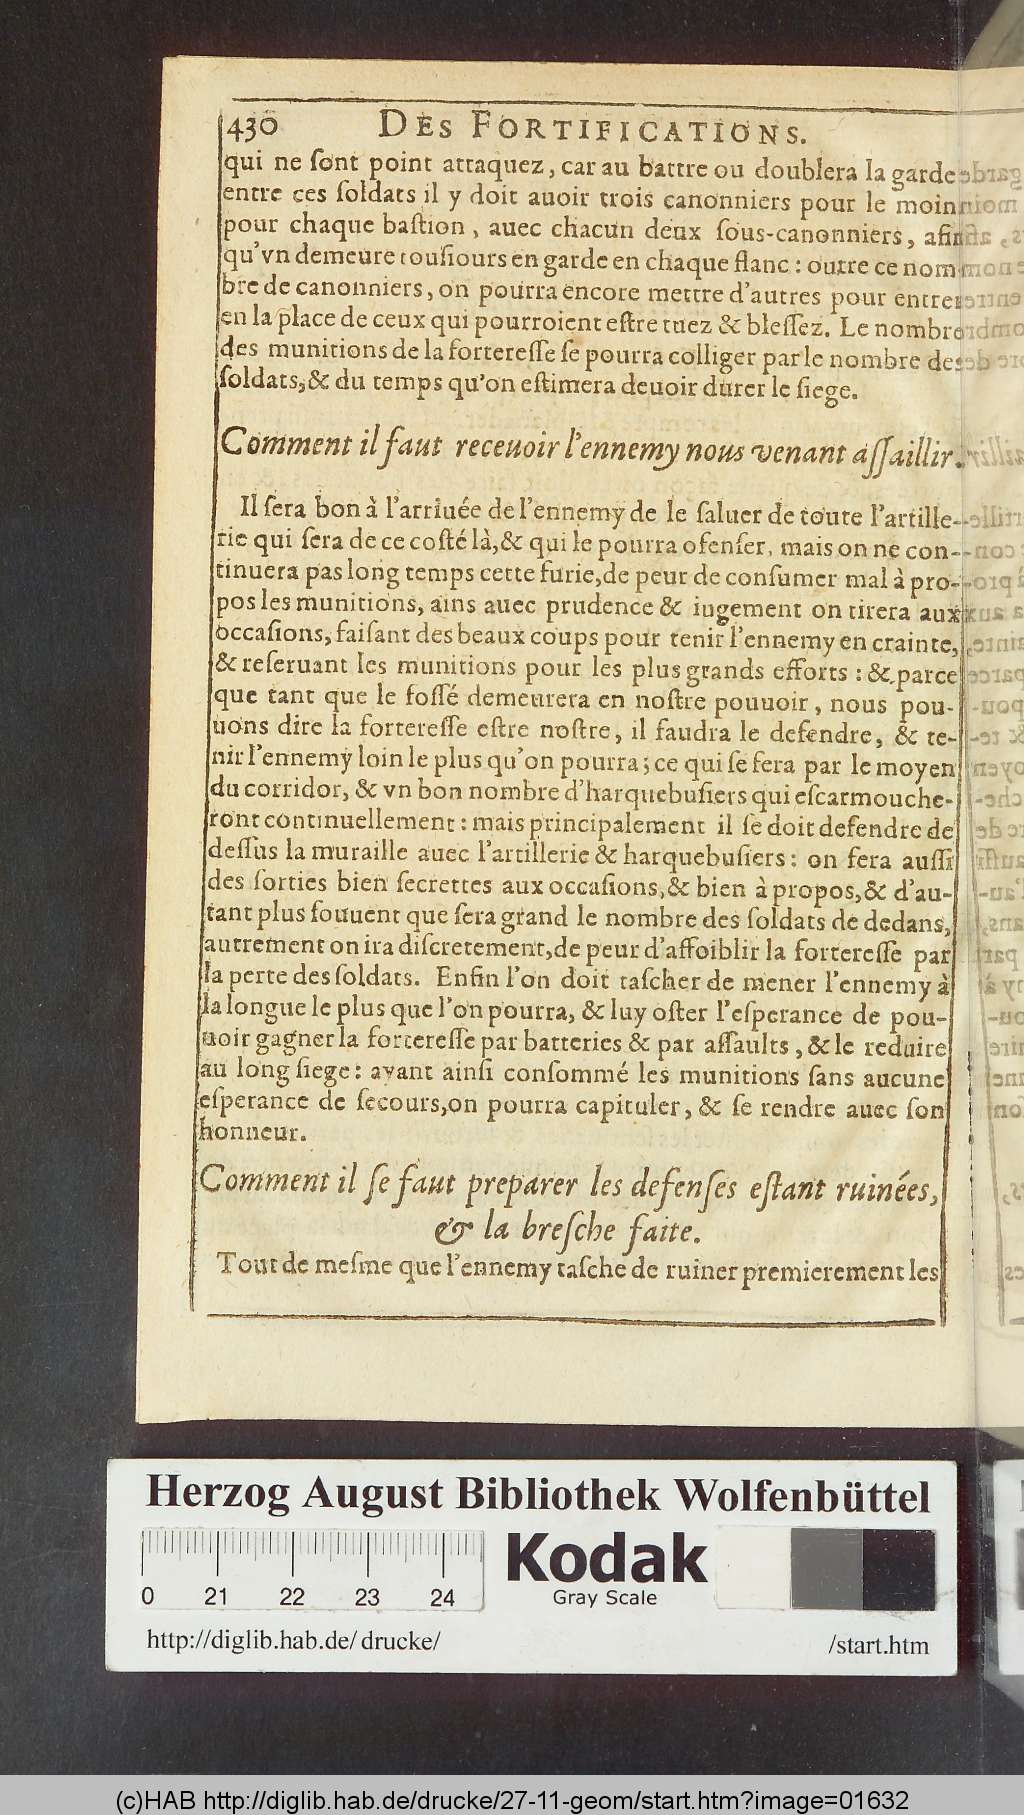 430 DES FORTIFICATIONS.
qui ne ſont point attaquez, car au battre ou doublera la garde
entre ces ſoldats il y doit auoir trois canonniers pour le moin
pour chaque baſtion, auec chacun deux ſous-canonniers, afin
qu'vn demeure touſiours en garde en chaque flanc: outre ce nom
bre de canonniers, on pourra encore mettre d'autres pour entrer
en la place de ceux qui pourroient eſtre tuez & bleſſez. Le nombre
des munitions de la fortereſſe ſe pourra colliger par le nombre des
ſoldats, & du temps qu'on eſtimera deuoir durer le ſiege.
Comment il faut receuoir l'ennemy nous venant aſſaillir.
Il ſera bon à l'arriuée de l'ennemy de le ſaluer de toute l'artille-
rie qui ſera de ce coſté là, & qui le pourra ofenſer, mais on ne con-
tinuera pas long temps cette furie, de peur de conſumer mal à pro-
pos les munitions, ains auec prudence & iugement on tirera aux
occaſions, faiſant des beaux coups pour tenir l'ennemy en crainte,
& reſeruant les munitions pour les plus grands efforts: & parce
que tant que le foſſé demeurera en noſtre pouuoir, nous pou-
uons dire la fortereſſe eſtre noſtre, il faudra le defendre, & te-
nir l'ennemy loin le plus qu'on pourra; ce qui ſe fera par le moyen
du corridor, & vn bon nombre d'harquebuſiers qui eſcarmouche-
ront continuellement: mais principalement il ſe doit defendre de
deſſus la muraille auec l'artillerie & harquebuſiers: on fera auſſi
des ſorties bien ſecrettes aux occaſions, & bien à propos, & d'au-
tant plus ſouuent que ſera grand le nombre des ſoldats de dedans,
autrement on ira diſcretement, de peur d'affoiblir la fortereſſe par
la perte des ſoldats. Enfin l'on doit taſcher de mener l'ennemy à
la longue le plus que l'on pourra, & luy oſter l'eſperance de pou-
uoir gagner la fortereſſe par batteries & par aſſaults, & le reduire
au long ſiege: ayant ainſi conſommé les munitions ſans aucune
eſperance de ſecours, on pourra capituler, & ſe rendre auec ſon
honneur.
Comment il ſe faut preparer les defenſes eſtant ruinées,
& la breſche faite.
Tout de meſme que l'ennemy taſche de ruiner premierement les
Herzog August Bibliothek Wolfenbüttel
Kodak
Gray Scale
0 21 22 23 24
http://diglib.hab.de/drucke/ /start.htm
(c)HAB http://diglib.hab.de/drucke/27-11-geom/start.htm?image=01632